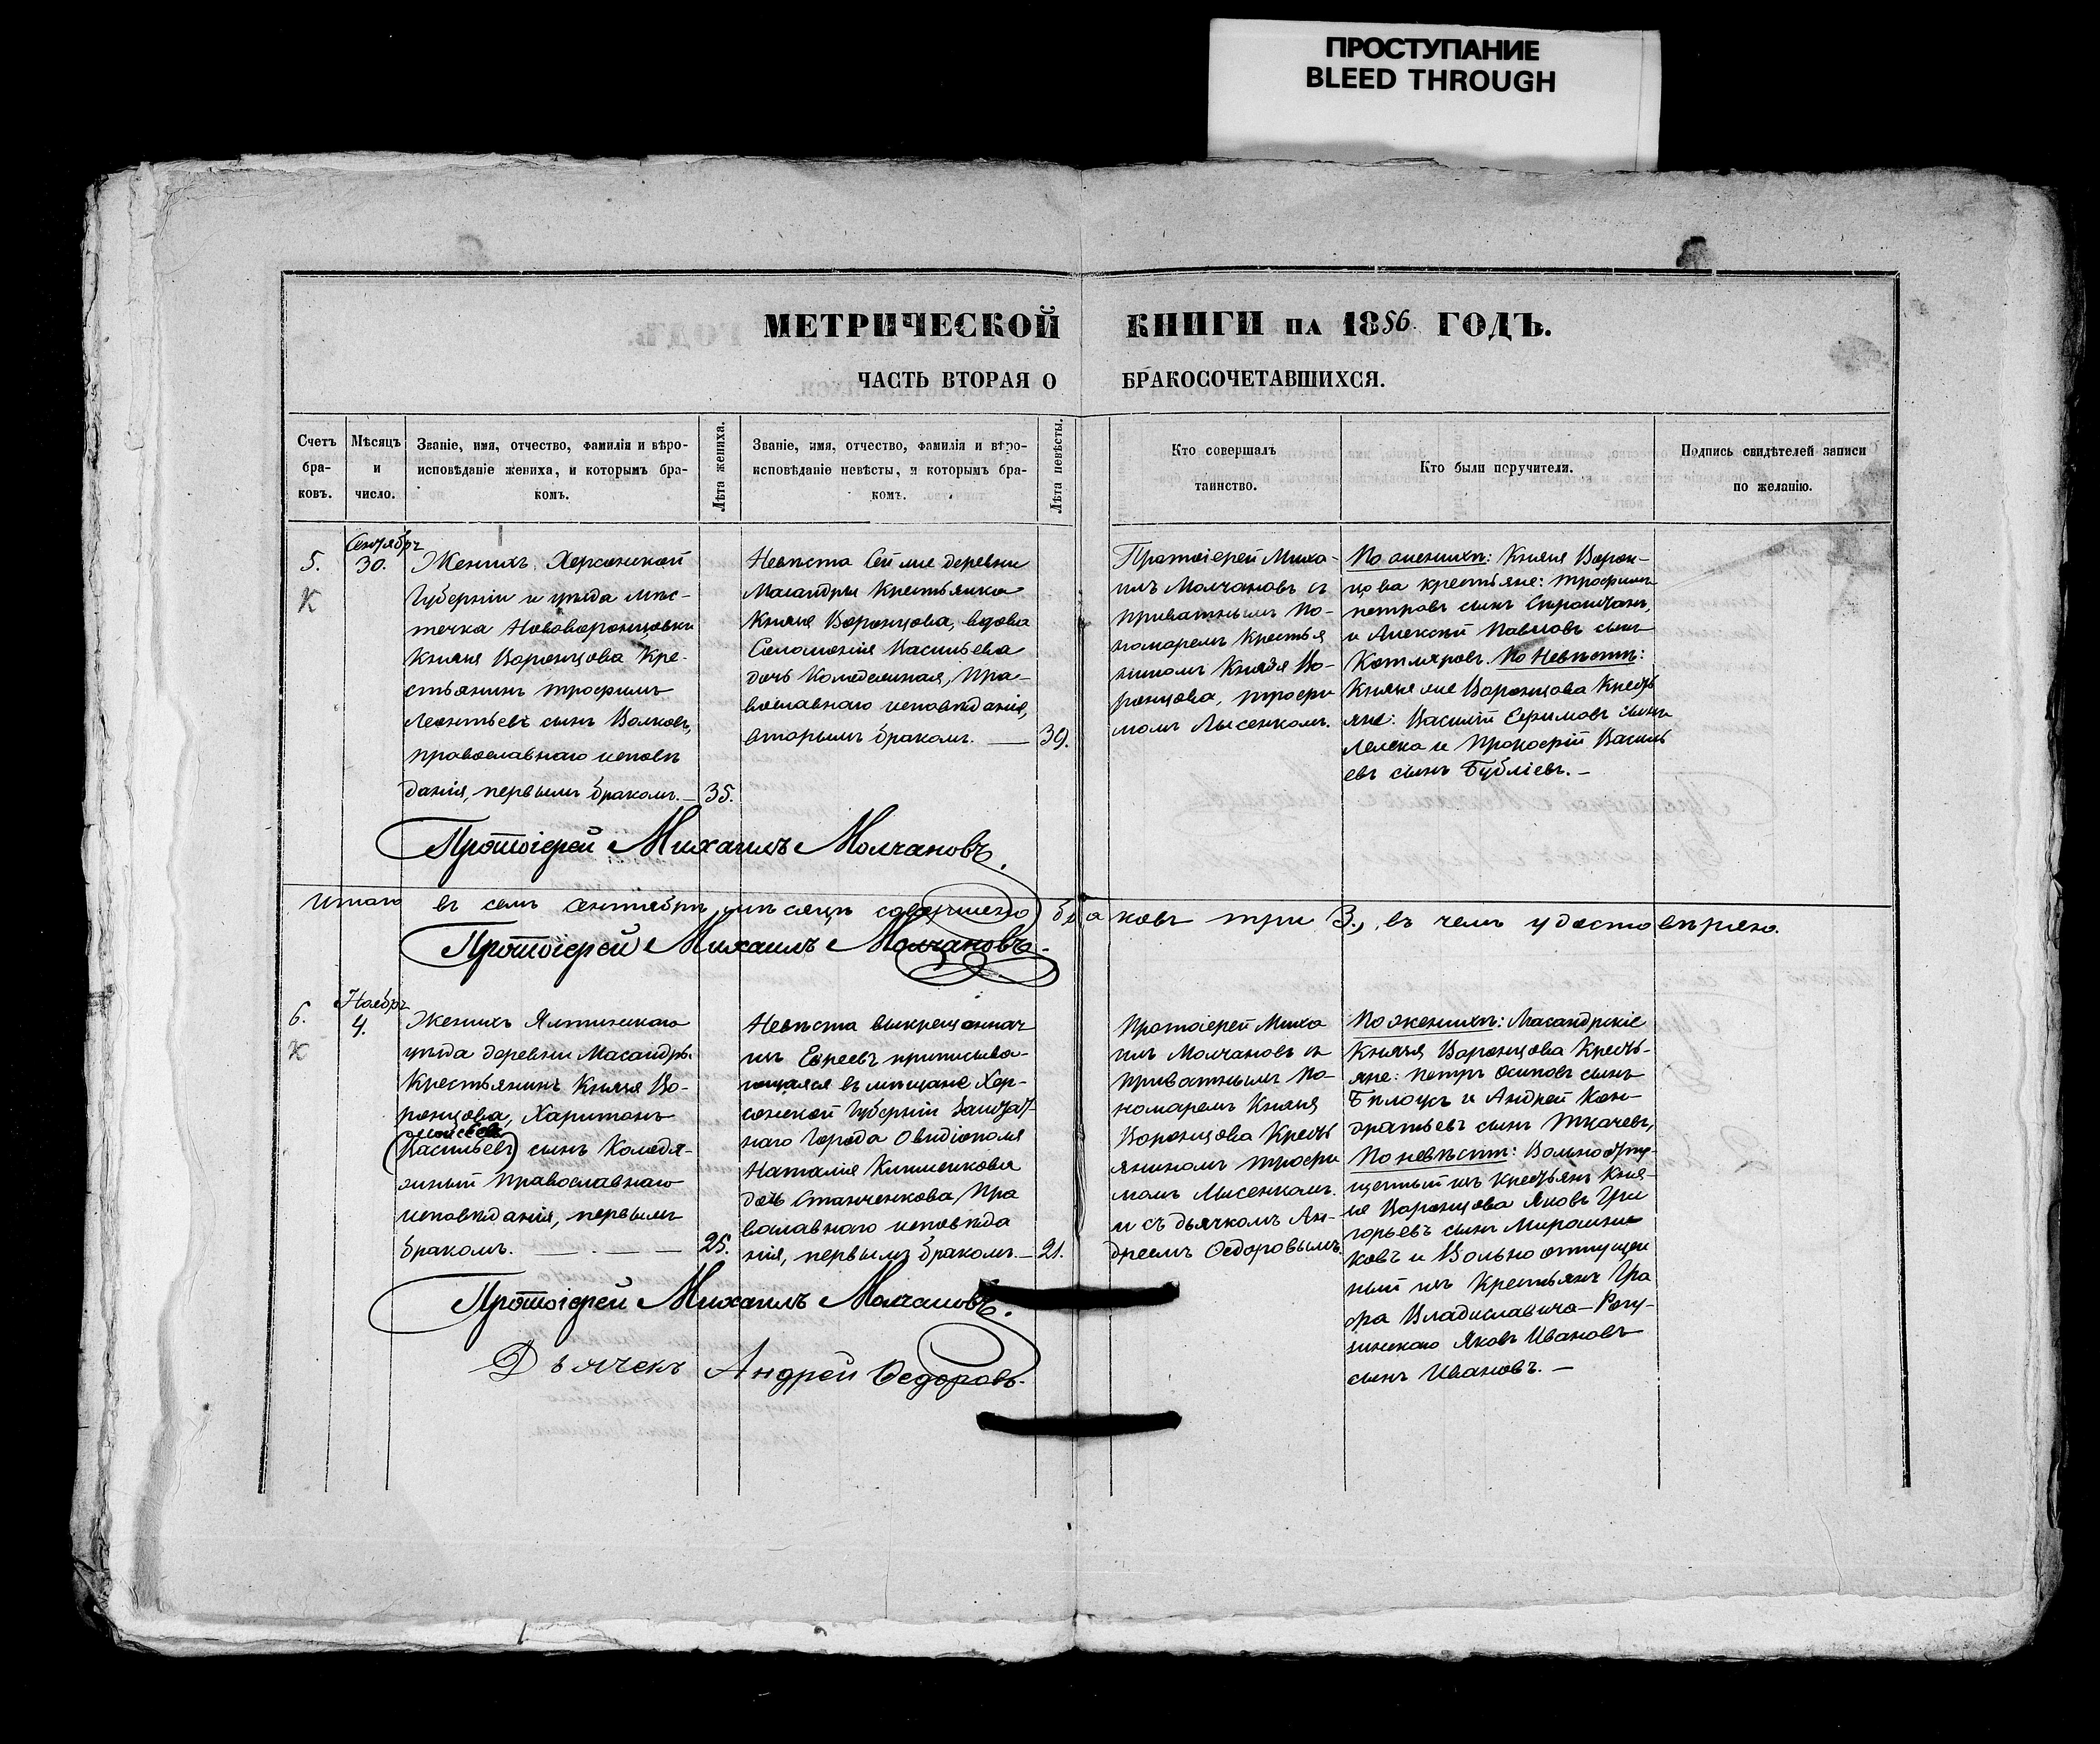 ПРОСТУПАНИЕ
BLEED THROUGH
МЕТРИЧЕСКОЙ КНИГИ на 1856 ГОДЪ.
ЧАСТЬ ВТОРАЯ О БРАКОСОЧЕТАВШИХСЯ.
Счетъ
бра-
ковъ.
Мѣсяцъ
и
число.
Званіе, имя, отчество, фамилія и вѣро-
исповѣданіе жениха, и которымъ бра-
комъ.
Лѣта жениха.
Званіе, имя, отчество, фамилія и вѣро-
исповѣданіе невѣсты, и которымъ бра-
комъ.
Лѣта невѣсты.
Кто совершалъ
таинство.
Кто были поручители.
Подпись свидѣтелей записи
по желанію.
5.
К
Сентябрь
30.
Женихъ Херсонской
Губерніи и уѣзда мѣс-
течка Нововоронцовки
Князя Воронцова Кре-
стьянинъ Трофимъ
Леонтьевъ сынъ Волковъ,
православнаго исповѣ
данія, первымъ бракомъ. —
35.
Невѣста Сей же деревни
Масандры Крестьянка
Князя Воронцова, вдова
Соломонія Васильева
дочь Колодежная, Пра-
вославнаго исповѣданія,
вторымъ бракомъ. —
39.
Протоіерей Миха-
илъ Молчановъ съ
приватнымъ По-
номаремъ Крестья
ниномъ Князя Во-
ронцова, Трофи
момъ Лысенкомъ.
По женихѣ: Князя Ворон-
цова крестьяне: Трофимъ
Петровъ сынъ
и Алексѣй Павловъ сынъ
Котляровъ. По Невѣстѣ:
Князя же Воронцова Кресть
яне: Василій Ефимовъ сынъ
Лелека и Прокофій Василь
евъ сынъ Бубліевъ. —
Протоіерей Михаилъ Молчановъ.
Итого въ семъ Сентябрѣ мѣсяцѣ совершено браковъ три 3., въ чемъ удостовѣряю.
Протоіерей Михаилъ Молчановъ.
6.
К
Ноябрь
4.
Женихъ Ялтинскаго
уѣзда деревни Масандры
Крестьянинъ Князя Во-
ронцова, Харитонъ
(Васильевъ) сынъ Колодя-
жный Православнаго
исповѣданія, первымъ
бракомъ. — . —
25.
Невѣста выкрещанная
изъ Евреевъ приписыва-
ющаяся въ мѣщане Хер-
сонской Губерніи Заштат-
наго Города Овидіополя
Наталія
дочь Станченкова, Пра
вославнаго исповѣда
нія, первымъ бракомъ. —
21.
Протоіерей Миха
илъ Молчановъ съ
приватнымъ По-
номаремъ Князя
Воронцова Кресть
яниномъ Трофи
момъ Лысенкомъ.
и съ дьячкомъ Ан-
дреемъ Ѳедоровымъ.
По женихѣ: Масандрскіе
Князя Воронцова Кресть-
яне: Петръ Осиповъ сынъ
Бѣлоусъ и Андрей Кон-
дратьевъ сынъ Ткачевъ,
По невѣстѣ: Вольноотпу-
щенный изъ Крестьянъ Кня-
зя Воронцова Яковъ Гри
горьевъ сынъ Мирошни
ковъ и Вольноотпущен
ный изъ Крестьянъ Гра
фа Владиславича-Рагу-
зинскаго Яковъ Ивановъ
сынъ Ивановъ. —
Протоіерей Михаилъ Молчановъ.
Дьячекъ Андрей Ѳедоровъ.